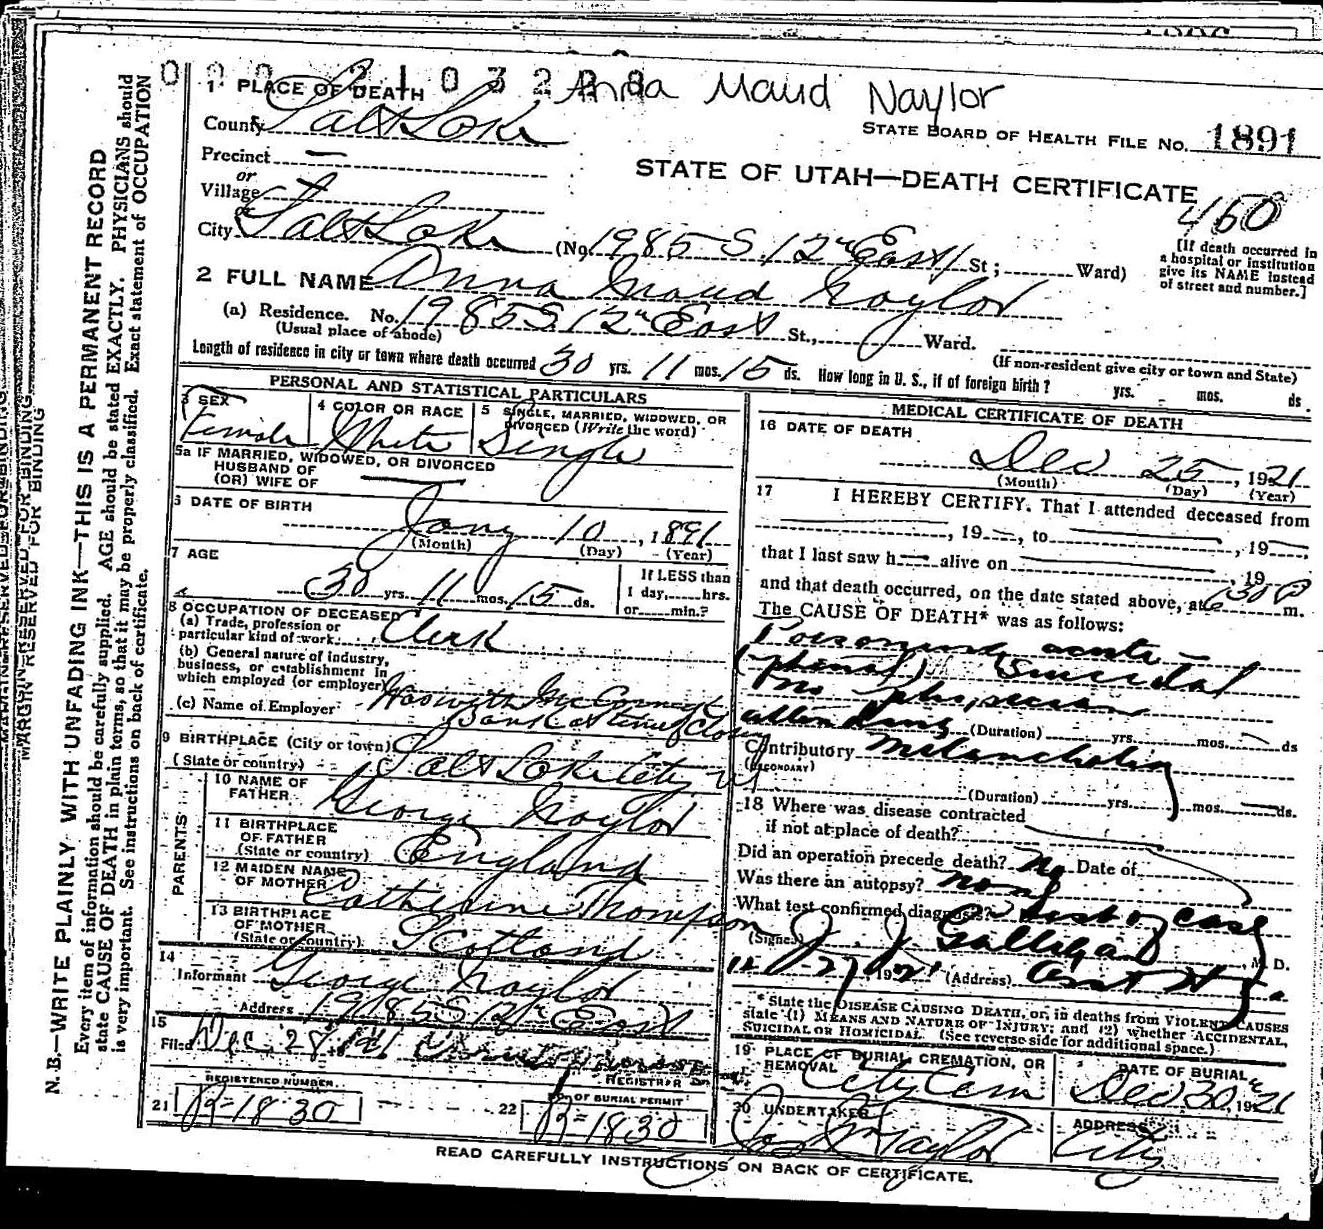 Anna Maud Naylor
1 PLACE OF DEATH
County Salt Lake
STATE BOARD OF HEALTH FILE No. 1891
Precinct —
or
Village
or
STATE OF UTAH—DEATH CERTIFICATE
460
City Salt Lake (No. 1985 S. 12th East St; Ward)
[If death occurred in
a hospital or institution
give its NAME instead
of street and number.]
2 FULL NAME Anna Maud Naylor
(a) Residence. No. 1985 S 12th East St., Ward.
(Usual place of abode)
(If non-resident give city or town and State)
Length of residence in city or town where death occurred 30 yrs. 11 mos. 15 ds. How long in U. S., if of foreign birth? yrs. mos. ds.
PERSONAL AND STATISTICAL PARTICULARS
3 SEX
Female
4 COLOR OR RACE
White
5 SINGLE, MARRIED, WIDOWED, OR
DIVORCED (Write the word)
Single
5a IF MARRIED, WIDOWED, OR DIVORCED
HUSBAND OF
(OR) WIFE OF
6 DATE OF BIRTH
Jany 10, 1891
(Month) (Day) (Year)
7 AGE
30 yrs. 11 mos. 15 ds.
If LESS than
1 day, hrs.
or min.?
8 OCCUPATION OF DECEASED
(a) Trade, profession or
particular kind of work Clerk
(b) General nature of industry,
business, or establishment in
which employed (or employer)
(c) Name of Employer
9 BIRTHPLACE (City or town)
(State or country) Salt Lake City
PARENTS
10 NAME OF
FATHER George Naylor
11 BIRTHPLACE
OF FATHER
(State or country) England
12 MAIDEN NAME
OF MOTHER Catherine Thompson
13 BIRTHPLACE
OF MOTHER
(State or country) Scotland
14
Informant George Naylor
Address 1985 S 12th East
15
Filed Dec. 28
REGISTRAR
REGISTERED NUMBER
21 B-1830
22 NO. OF BURIAL PERMIT
B-1830
MEDICAL CERTIFICATE OF DEATH
16 DATE OF DEATH
Dec 25, 1921
(Month) (Day) (Year)
17 I HEREBY CERTIFY, That I attended deceased from
, 19 , to , 19
that I last saw h alive on , 19
and that death occurred, on the date stated above, at 30 P m.
The CAUSE OF DEATH* was as follows:
Poisoning acute —
Suicidal
no physician
attending
(Duration) yrs. mos. ds
Contributory Melancholia
(SECONDARY)
(Duration) yrs. mos. ds.
18 Where was disease contracted
if not at place of death?
Did an operation precede death? No Date of
Was there an autopsy? none
What test confirmed diagnosis? Hist of case
(Signed) J. J. Galligan M. D.
12-27 1921 (Address)
* State the DISEASE CAUSING DEATH, or, in deaths from VIOLENT CAUSES
state (1) MEANS AND NATURE OF INJURY; and (2) whether ACCIDENTAL,
SUICIDAL OR HOMICIDAL. (See reverse side for additional space.)
19 PLACE OF BURIAL, CREMATION, OR
REMOVAL City Cem
DATE OF BURIAL
Dec 30, 1921
20 UNDERTAKER
Taylor
ADDRESS
City
READ CAREFULLY INSTRUCTIONS ON BACK OF CERTIFICATE.
MARGIN RESERVED FOR BINDING
N. B.—WRITE PLAINLY WITH UNFADING INK—THIS IS A PERMANENT RECORD
Every item of information should be carefully supplied. AGE should be stated EXACTLY. PHYSICIANS should
state CAUSE OF DEATH in plain terms, so that it may be properly classified. Exact statement of OCCUPATION
is very important. See instructions on back of certificate.